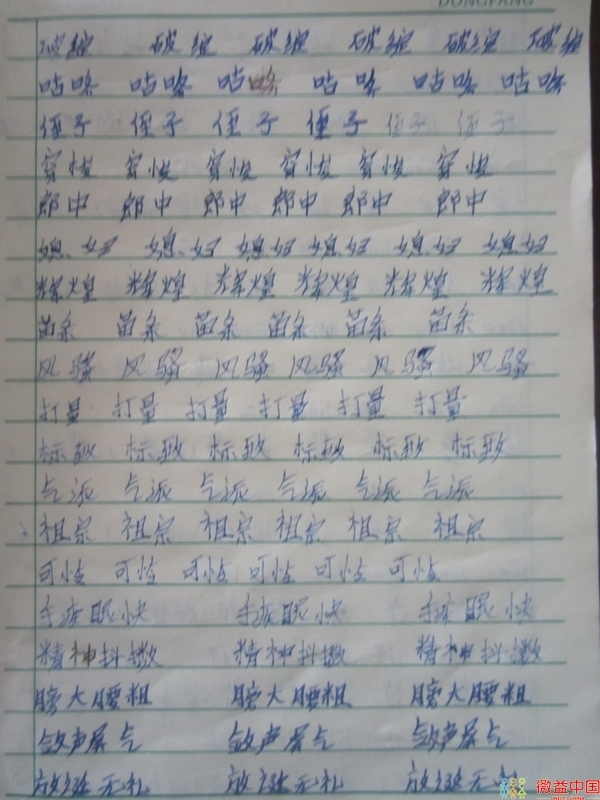 DONGFANG
破绽 破绽 破绽 破绽 破绽 破绽
咕咚 咕咚 咕咚 咕咚 咕咚 咕咚
侄子 侄子 侄子 侄子 侄子 侄子
穿梭 穿梭 穿梭 穿梭 穿梭 穿梭
郎中 郎中 郎中 郎中 郎中 郎中
媳妇 媳妇 媳妇 媳妇 媳妇 媳妇
辉煌 辉煌 辉煌 辉煌 辉煌 辉煌
苗条 苗条 苗条 苗条 苗条 苗条
风骚 风骚 风骚 风骚 风骚 风骚
打量 打量 打量 打量 打量 打量
标致 标致 标致 标致 标致 标致
气派 气派 气派 气派 气派 气派
祖宗 祖宗 祖宗 祖宗 祖宗 祖宗
可怜 可怜 可怜 可怜 可怜 可怜
手疾眼快 手疾眼快 手疾眼快
精神抖擞 精神抖擞 精神抖擞
膀大腰粗 膀大腰粗 膀大腰粗
敛声屏气 敛声屏气 敛声屏气
放诞无礼 放诞无礼 放诞无礼
微益中国